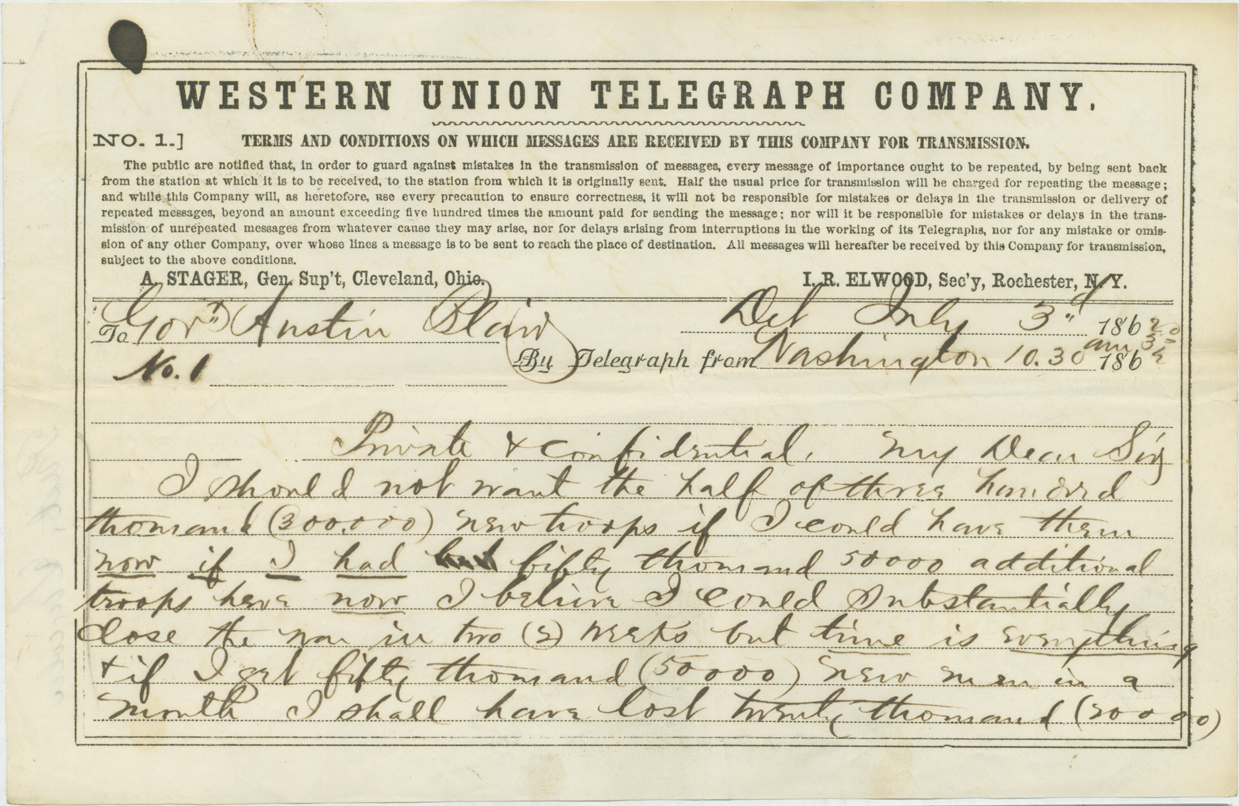 WESTERN UNION TELEGRAPH COMPANY.
NO. 1.] TERMS AND CONDITIONS ON WHICH MESSAGES ARE RECEIVED BY THIS COMPANY FOR TRANSMISSION.
The public are notified that, in order to guard against mistakes in the transmission of messages, every message of importance ought to be repeated, by being sent back
from the station at which it is to be received, to the station from which it is originally sent. Half the usual price for transmission will be charged for repeating the message;
and while this Company will, as heretofore, use every precaution to ensure correctness, it will not be responsible for mistakes or delays in the transmission or delivery of
repeated messages, beyond an amount exceeding five hundred times the amount paid for sending the message; nor will it be responsible for mistakes or delays in the trans-
mission of unrepeated messages from whatever cause they may arise, nor for delays arising from interruptions in the working of its Telegraphs, nor for any mistake or omis-
sion of any other Company, over whose lines a message is to be sent to reach the place of destination. All messages will hereafter be received by this Company for transmission,
subject to the above conditions.
A. STAGER, Gen. Sup't, Cleveland, Ohio. I. R. ELWOOD, Sec'y, Rochester, N.Y.
To Gov.r Austin Blair Det July 3d 1862
No. 1 By Telegraph from Washington 10.30 am 186
Private & confidential. My Dear Sir
I should not want the half of three hundred
thousand (300.000) new troops if I could have them
now if I had fifty thousand 50000 additional
troops here now I believe I could substantially
close the war in two (2) weeks but time is everything
& if I get fifty thousand (50000) new men in a
month I shall have lost twenty thousand (20000)